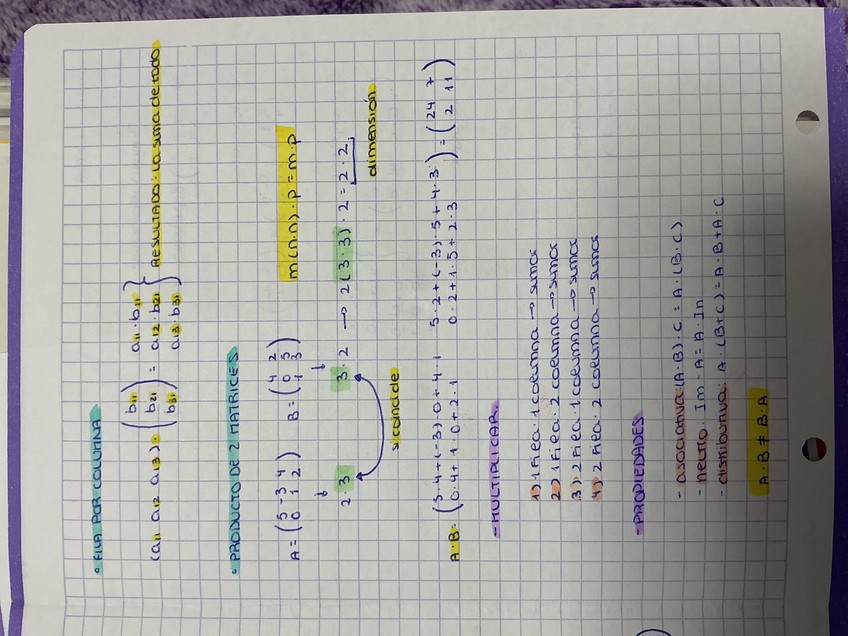 • FILA POR COLUMNA
(a11 a12 a13) · (b11 b21 b31) = a11 · b11 a12 · b21 a13 · b31 } RESULTADO: La suma de todo
• PRODUCTO DE 2 MATRICES
A = (5 -3 4
0 1 2) B = (4 2
0 5
1 3) m(n·n)·p = m·p
2·3 3·2 → 2(3·3)·2 = 2·2
si coincide dimensión
A·B = (5·4+(-3)·0+4·1 5·2+(-3)·5+4·3
0·4+1·0+2·1 0·2+1·5+2·3) = (24 7
2 11)
- MULTIPLICAR
1) 1 Fila · 1 columna → sumas
2) 1 Fila · 2 columna → sumas
3) 2 Fila · 1 columna → sumas
4) 2 Fila · 2 columna → sumas
- PROPIEDADES
- asociativa: (A·B)·C = A·(B·C)
- neutro: Im·A = A·In
- distributiva: A·(B+C) = A·B+A·C
A·B ≠ B·A